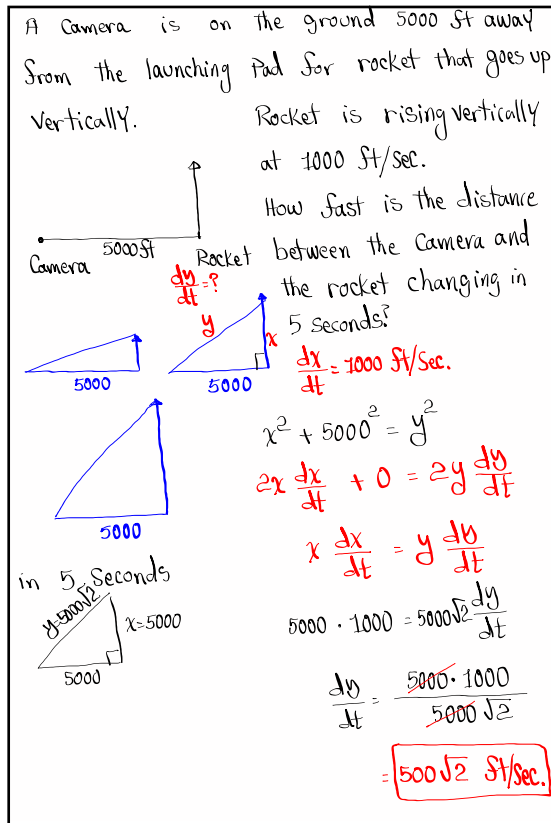 A Camera is on the ground 5000 ft away
from the launching Pad for rocket that goes up
vertically.
Rocket is rising vertically
at 1000 ft/sec.
How fast is the distance
between the Camera and
the rocket changing in
5 seconds?
5000ft
Camera
Rocket
dy/dt = ?
y
x
5000
5000
5000
dx/dt = 1000 ft/sec.
x² + 5000² = y²
2x dx/dt + 0 = 2y dy/dt
x dx/dt = y dy/dt
in 5 Seconds
y=5000√2
x=5000
5000
5000 · 1000 = 5000√2 dy/dt
dy/dt = 5000 · 1000 / 5000 √2
= 500√2 ft/sec.